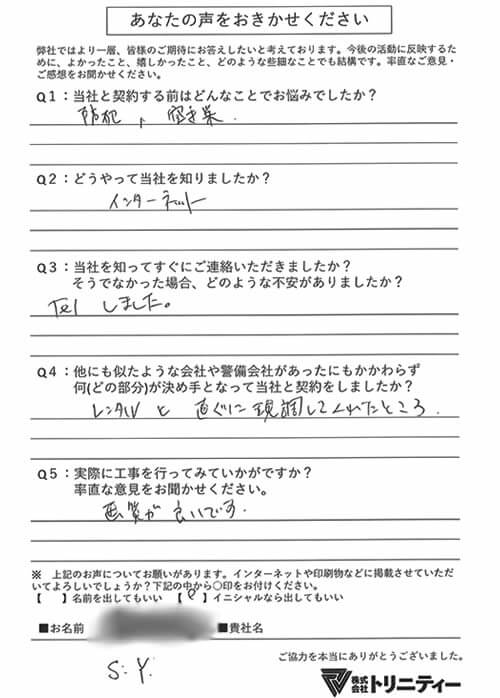 あなたの声をおきかせください
弊社ではより一層、皆様のご期待にお答えしたいと考えております。今後の活動に反映するた
めに、よかったこと、嬉しかったこと、どのような些細なことでも結構です。率直なご意見・
ご感想をお聞かせください。
Q1：当社と契約する前はどんなことでお悩みでしたか？
防犯、空き巣.
Q2：どうやって当社を知りましたか？
インターネット
Q3：当社を知ってすぐにご連絡いただきましたか？
そうでなかった場合、どのような不安がありましたか？
Tel しました。
Q4：他にも似たような会社や警備会社があったにもかかわらず
何(どの部分)が決め手となって当社と契約をしましたか？
レンタルと 直ぐに現調してくれたところ.
Q5：実際に工事を行ってみていかがですか？
率直な意見をお聞かせください。
画質が良いです.
※ 上記のお声についてお願いがあります。インターネットや印刷物などに掲載させていただ
いてよろしいでしょうか？下記の中から○印をお付けください。
【　】名前を出してもいい 【○】イニシャルなら出してもいい
■お名前 ■貴社名
S.Y.
ご協力を本当にありがとうございました。
株式会社トリニティー